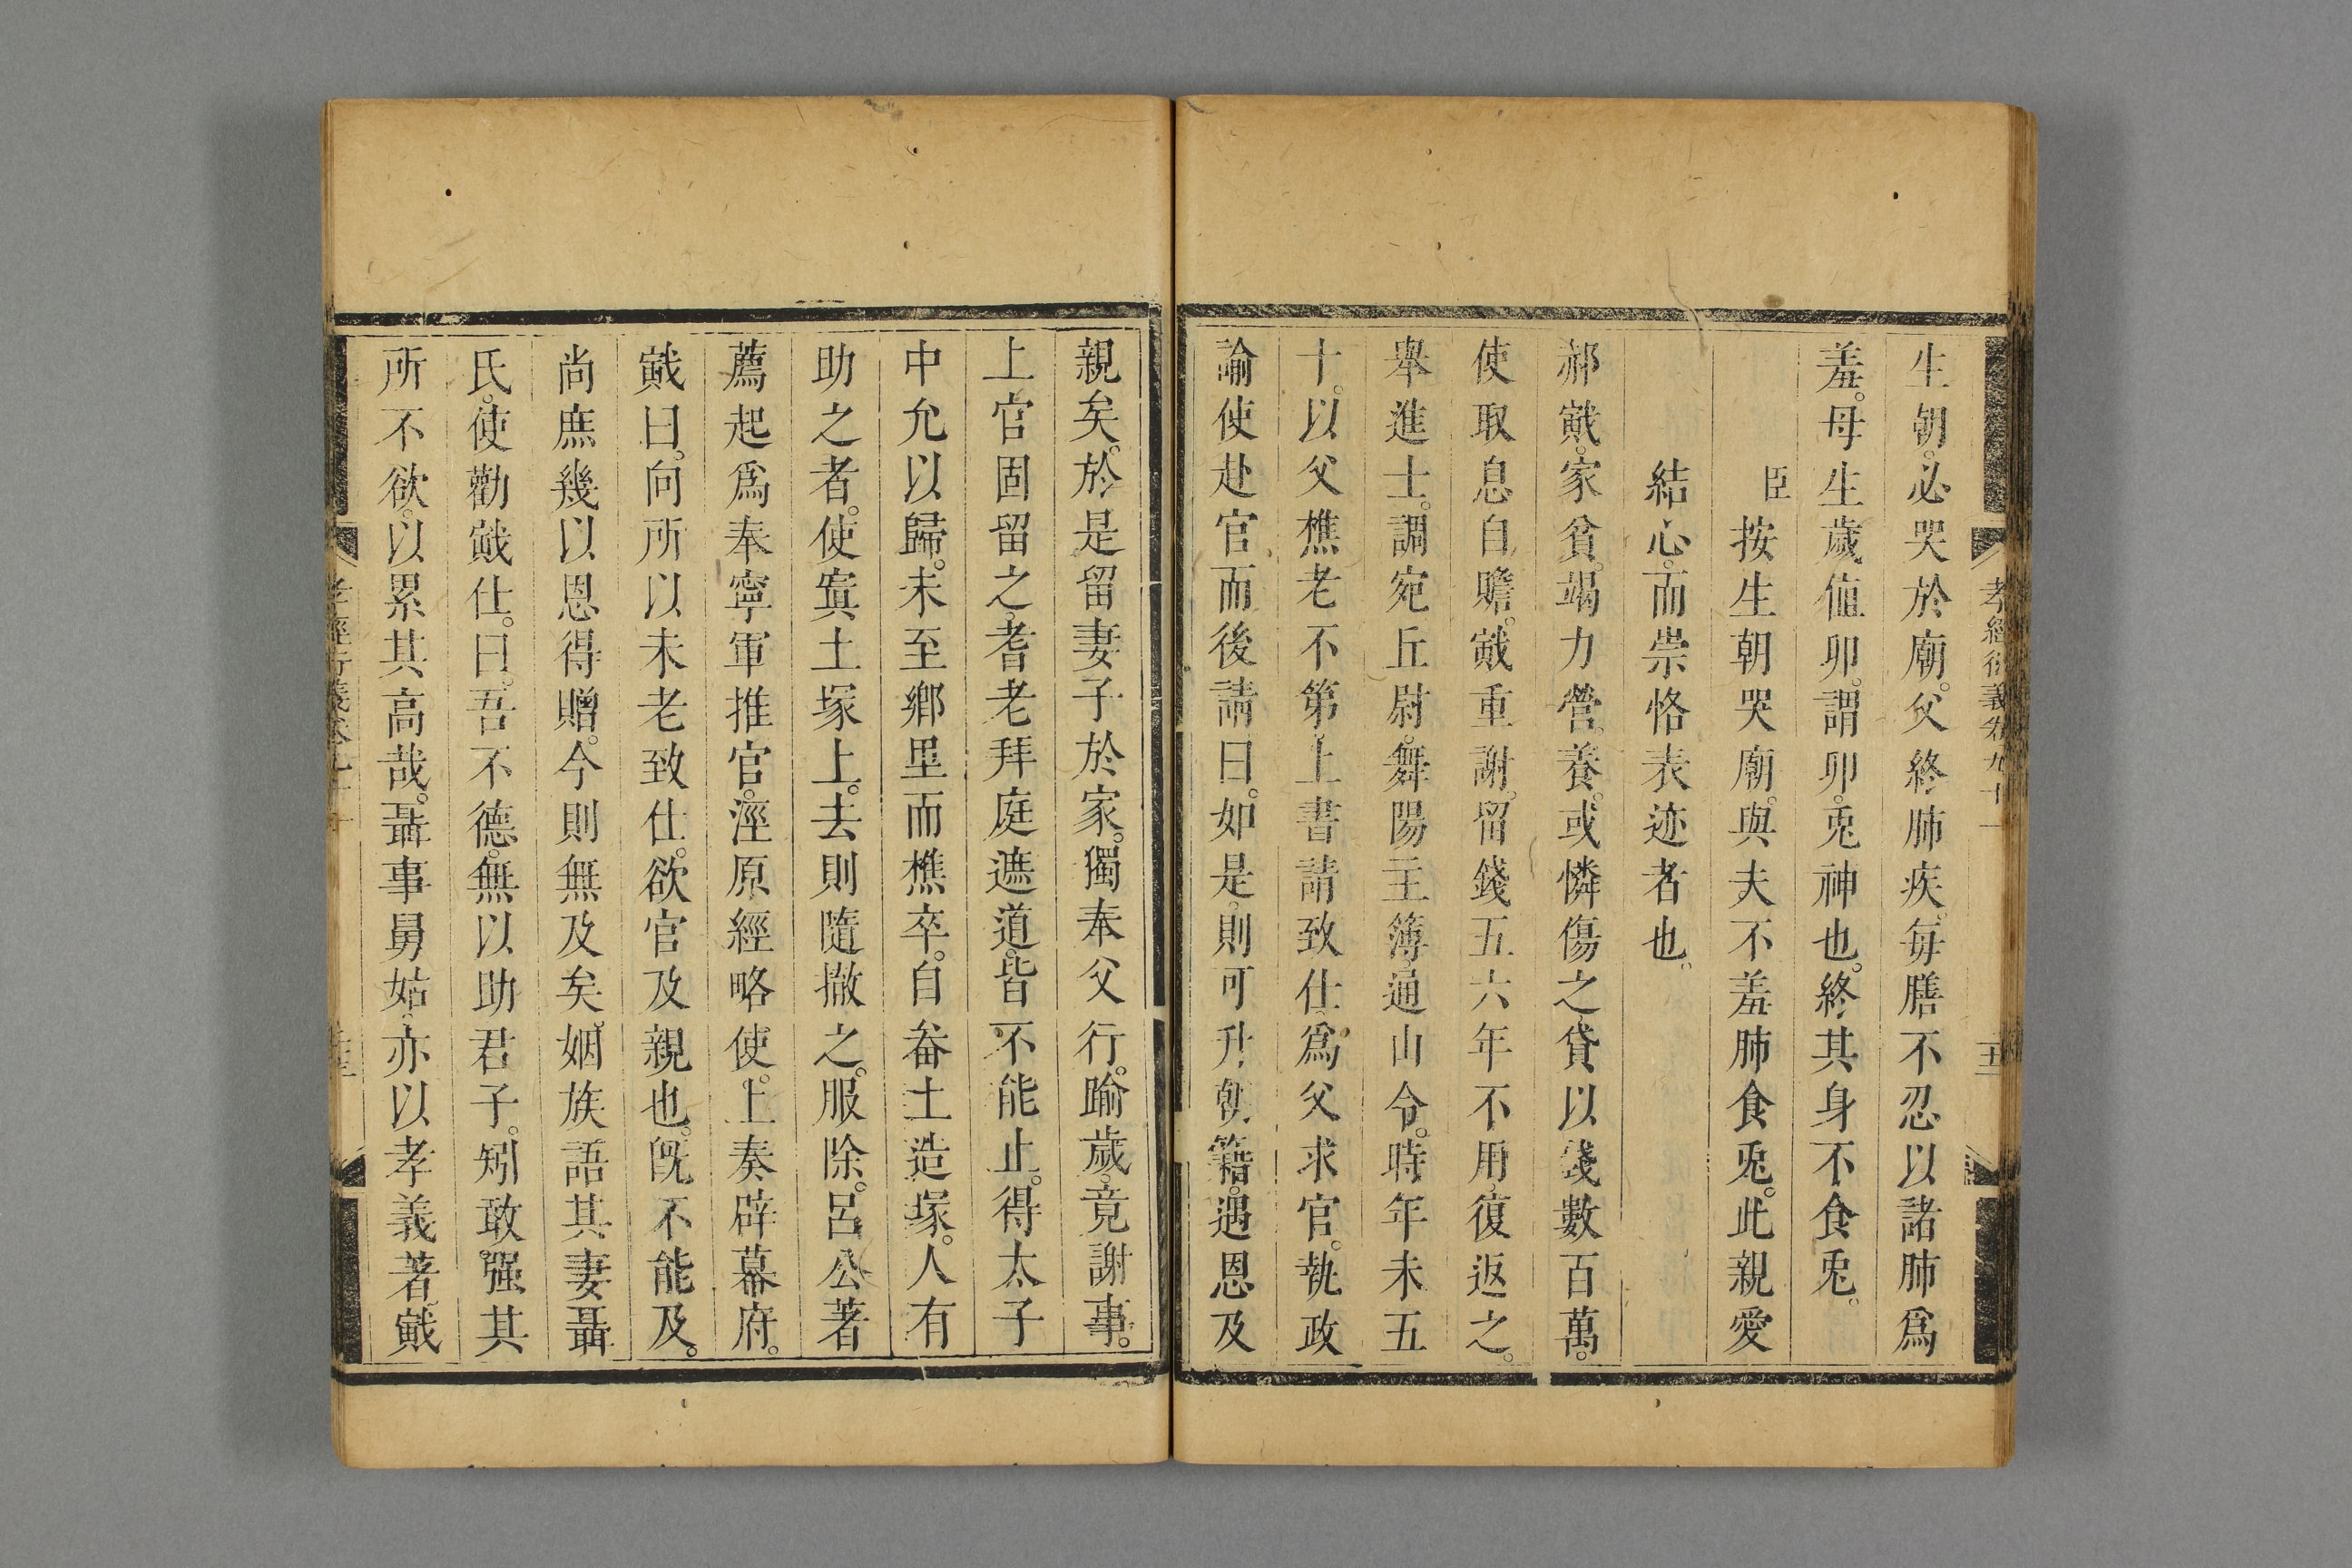 孝經衍義卷九十一 五
生朝。必哭於廟。父終肺疾。每膳不忍以諸肺爲
羞。母生歲値卯。謂卯。兎神也。終其身不食兎。
臣按生朝哭廟。與夫不羞肺食兎。此親愛
結心。而崇恪表迹者也。
郝戭。家貧。竭力營養。或憐傷之。貸以錢數百萬。
使取息自贍。戭重謝。留錢五六年不用。復返之。
舉進士。調宛丘尉。舞陽主簿。通山令。時年未五
十。以父樵老不第。上書請致仕。爲父求官。執政
諭使赴官而後請曰。如是。則可升朝籍。遇恩及
親矣。於是留妻子於家。獨奉父行。踰歲。竟謝事。
上官固留之。耆老拜庭遮道。皆不能止。得太子
中允以歸。未至鄉里而樵卒。自畚土造塚。人有
助之者。使寘土塚上。去則隨撤之。服除。呂公著
薦起爲奉寧軍推官。涇原經略使。上奏辟幕府。
戭曰。向所以未老致仕。欲官及親也。旣不能及。
尚庶幾以恩得贈。今則無及矣。姻族語其妻聶
氏。使勸戭仕。曰。吾不德。無以助君子。矧敢强其
所不欲。以累其高哉。聶事舅姑。亦以孝義著。戭